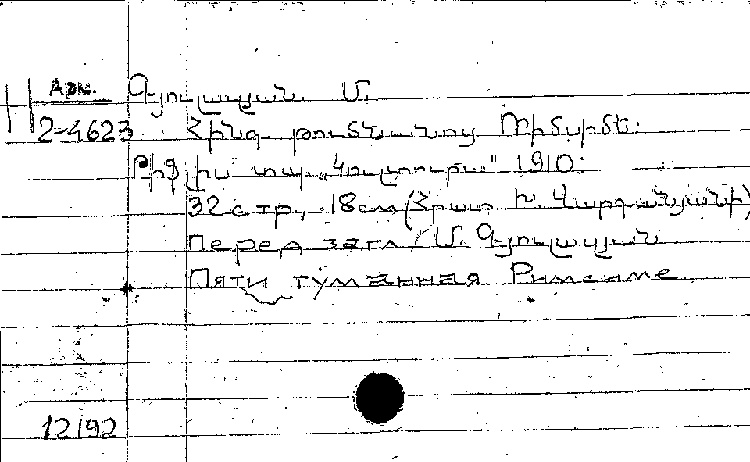 Арм. Գյուլազյան Մ.
2-4623 Հինգ թումնանոց Րիմսիմե:
Թիֆլիս տպ. „Կուլտուրա" 1910:
32 стр., 18см (Հրատ. Խ. Վարդանյանի)
Перед загл. Մ. Գյուլազյան
Пяти туманная Римсиме
12/92